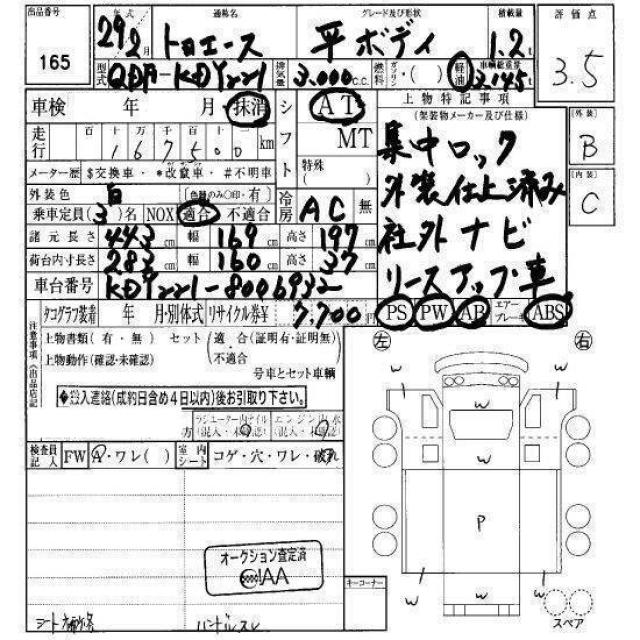 出品番号 年式 通称名 グレード及び形状 積載量 評価点
165 29年2月 トヨエース 平ボディ 1.2t 3.5
型式 QDF-KDY221 排気量 3,000c.c. 燃料 ガソリン・( ) 軽油 車輌総重量 3.145t
車検 年 月 抹消 シフト AT MT 特殊( )
走行 百十万千百十一 167500 km
メーター歴 $交換車・*改竄車・#不明車
外装色 白 (色替のみ○印・有)
乗車定員(3)名 NOX 適合 不適合 冷房 AC 無
諸元長さ 443cm 幅 169cm 高さ 197cm
荷台内寸長さ 283cm 幅 160cm 高さ 37cm
車台番号 KDY221-8006932
タコグラフ装着 年 月・別体式 リサイクル券¥ 7,700円
上物特記事項
(架装物メーカー及び仕様)
集中ロック
外装仕上済み
社外ナビ
リースアップ車
PS PW AB エアーブレーキ ABS
[外装]
B
[内装]
C
注意事項(出品店記
上物書類(有・無) セット(適合(証明有・証明無)・不適合)
上物動作(確認・未確認) 号車とセット車輌
入連絡(成約日含め4日以内)後お引取り下さい。
ラジエーター内オイル(混入・未確認) エンジン内水(混入・未確認)
検査員記入 FW A・ワレ( ) 室内シート コゲ・穴・ワレ・破れ
オークション査定済
AA
シート補修跡 ハンドルスレ
キーコーナー
左 右
w w
w
w
w w
P
w w w
スペア